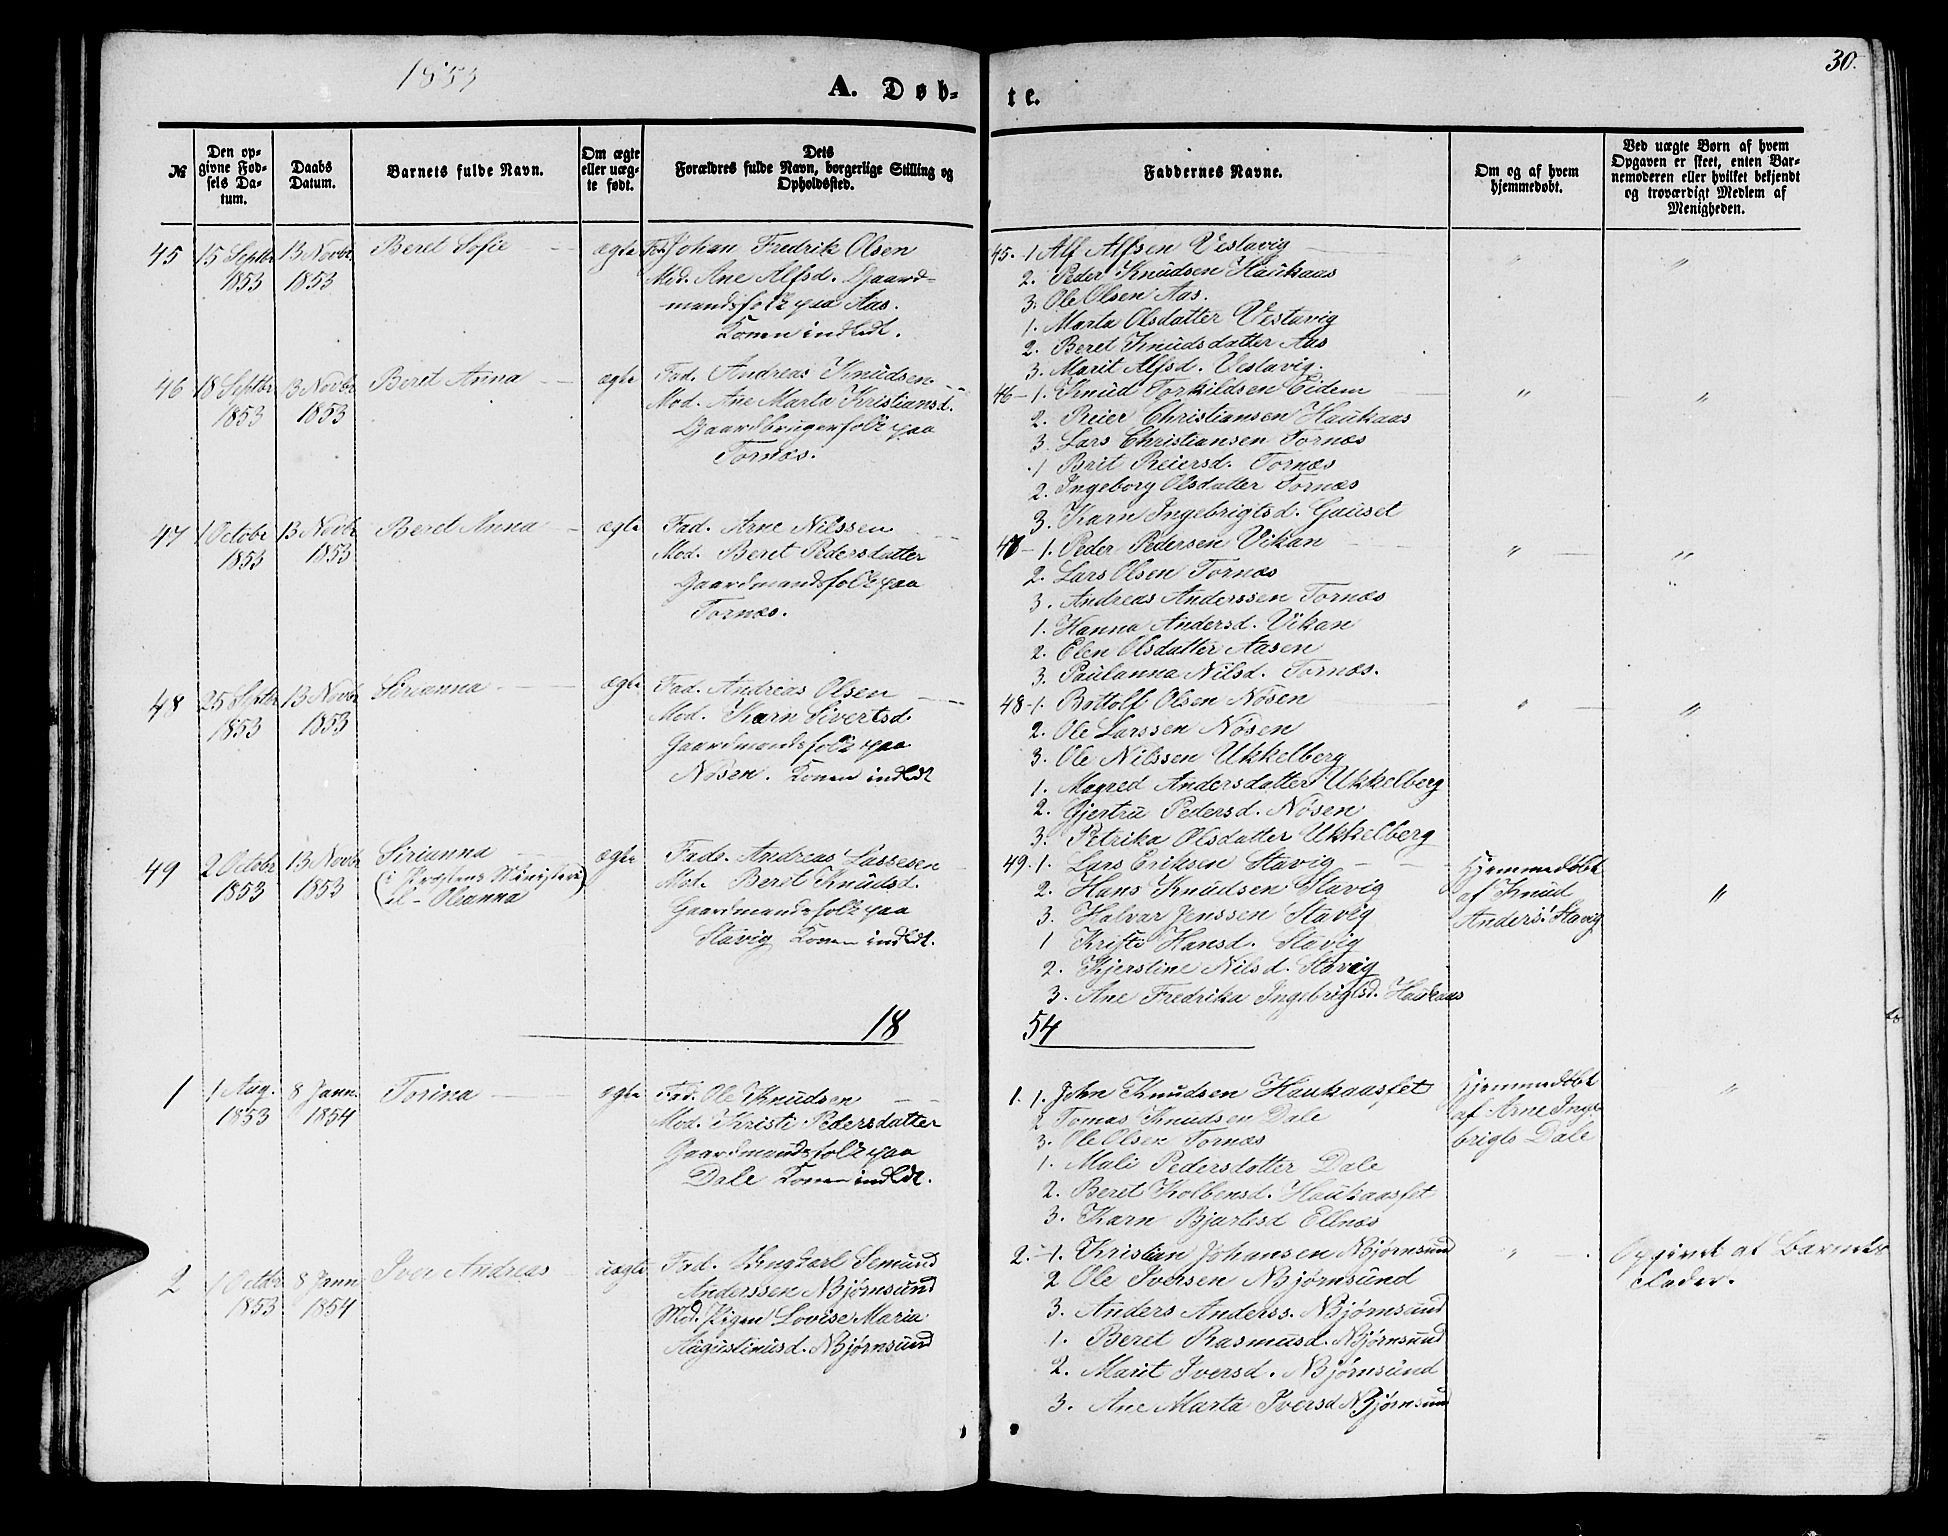 1853
A. Døb-
te.
30.
№
Den op-
givne Fød-
sels Da-
tum.
Daabs
Datum.
Barnets fulde Navn.
Om ægte
eller uæg-
te født.
Dets
Forældres fulde Navn, borgerlige Stilling og
Opholdssted.
Faddernes Navne.
Om og af hvem
hjemmedøbt.
Ved uægte Børn af hvem
Opgaven er skeet, enten Bar-
nemoderen eller hvilket bekjendt
og troværdigt Medlem af
Menigheden.
45
15 Septbr
1853
13 Novbr
1853
Beret Sofie
ægte
Fad. Johan Fredrik Olsen
Mod. Ane Alfsd. Gaard-
mandsfolk paa Aas.
Konen indledt.
45. 1 Alf Alfsen Vestavig
2. Peder Knudsen Haukaas
3. Ole Olsen Aas.
1. Marta Olsdatter Vestavig
2. Beret Knudsdatter Aas
3. Marit Alfsd. Vestavig.
46
18 Septbr
1853
13 Novbr
1853
Berit Anna
ægte
Fad. Andreas Knudsen
Mod. Ane Marta Kristiansd.
Gaardbrugerfolk paa
Tornæs.
46 - 1. Knud Torkildsen Eidem
2. Reier Christiansen Haukaas
3 Lars Christiansen Tornæs
1 Brit Reiersd. Tornæs
2. Ingeborg Olsdatter Tornæs
3. Karn Ingebrigtsd. Gauset
47
1 Octobr
1853
13 Novbr
1853
Beret Anna
ægte
Fad. Arne Nilssen
Mod. Beret Pedersdatter
Gaardmandsfolk paa
Tornæs.
47 - 1. Peder Pedersen Vikan
2. Lars Olsen Tornæs
3. Andreas Anderssen Tornæs
1. Hanna Andersd. Vikan
2. Elen Olsdatter Aasen
3. Paulanna Nilsd. Tornæs.
48
25 Septbr
1853
13 Novbr
1853
Sirianna
ægte
Fad. Andreas Olsen
Mod. Karn Sivertsd.
Gaardmandsfolk paa
Nøsen. Konen indledt
48 - 1. Bottolf Olsen Nøsen
2. Ole Larssen Nøsen
3. Ole Nilssen Ukkelberg
1. Magred Andersdatter Ukkelberg
2. Gjertru Pedersd. Nøsen
3. Petrika Olsdatter Ukkelberg
49
2 Octobr
1853
13 Novbr
1853
Sirianna
Olianna
ægte
Fade. Andreas Lassesen
Mod. Beret Knudsd.
Gaardmandsfolk paa
Stavig Konen indledt.
49. 1. Lars Eriksen Stavig
2. Hans Knudsen Stavig
3. Halvar Jenssen Stavig
1 Kristi Hansd. Stavig
2. Kjerstine Nilsd. Stavig
3. Ane Fredrika Ingebrigtsd. Haukaas
Hjemmedøbt
af Knud
Anders. Stavig
18
54
1
1 Aug.
1853
8 Jann.
1854
Torina
ægte
Fad. Ole Knudsen
Mod. Kristi Pedersdatter
Gaardmandsfolk paa
Dale Konen indledt.
1. 1. John Knudsen Haukaasset
2 Tomas Knudsen Dale
3. Ole Olsen Tornæs
1. Mali Pedersdatter Dale
2. Beret Kolbensd. Haukaasset
3. Karn Bjartsd Ellnæs
Hjemmedøbt
af Arne Inge
brigts Dale
2
1 Octbr
1853
8 Jann
1854
Iver Andreas
uægte
Fad. Ungkarl Semund
Anderssen NBjørnsund
Mod. Pigen Lovise Maria
Augustinusd. NBjørnsund
2. - 1. Kristian Johansen NBjørnsund
2 Ole Iversen NBjørnsund
3. Anders Anderss. NBjørnsund
1. Beret Rasmusd. NBjørnsund
2. Marit Iversd. NBjørnsund
3. Ane Marta Iversd NBjørnsund
Opgivet af Barnets
Fader.